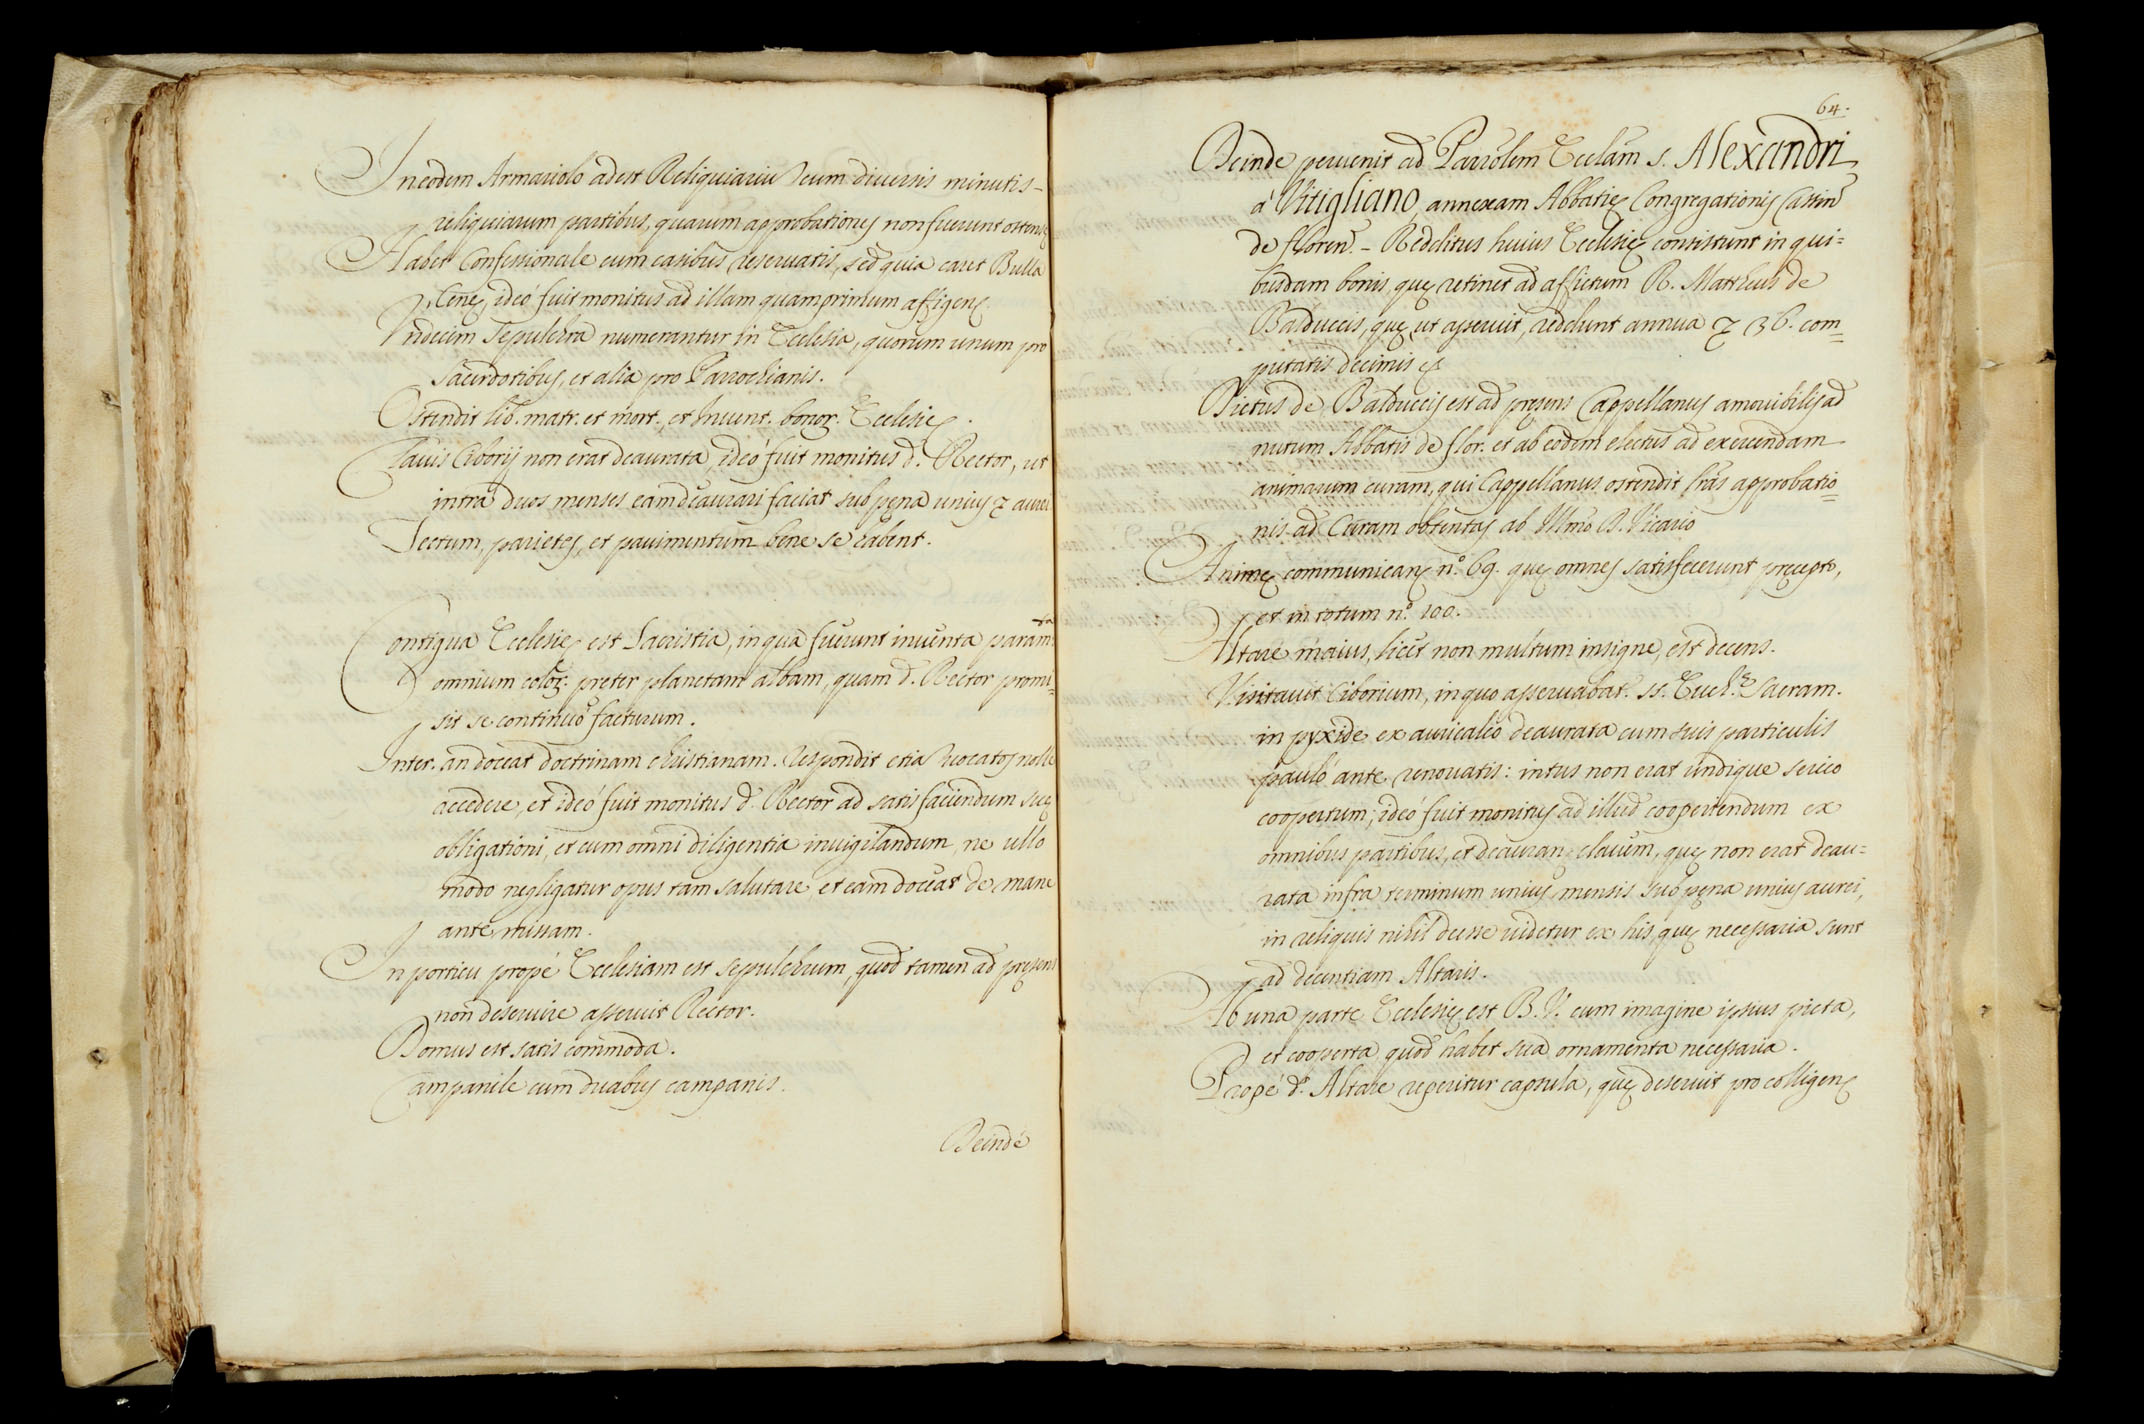 In eodem Armariolo adest Reliquiariu cum diversis minutis-
reliquiarum partibus, quarum approbationes non fuerunt ostensę
Habet Confessionale cum casibus reservatis, sed quia caret Bulla
Cenę ideò fuit monitus ad illam quamprimum affigen.
Undecim Sepulchra numerantur in Ecclesia, quorum unum pro
sacerdotibus, et alia pro Parrochianis.
Ostendit lib. matr. et mort. et Invent. bonor. Ecclesię.
Clavis Ciborij non erat deaurata, ideò fuit monitus d. Rector, ut
infra duos menses eam deaurari faciat sub pęna unius ▽ aurei
Tectum, parietes, et pavimentum bene se habent.
Contigua Ecclesię est Sacristia, in qua fuerunt inventa param.ta
omnium color. preter planetam albam, quam d. Rector promi=
sit se continuò facturum.
Inter. an doceat doctrinam christianam. respondit etia vocatos nolle
accedere, et ideò fuit monitus d. Rector ad satisfaciendum suę
obligationi, et cum omni diligentia invigilandum, ne ullo
modo negligatur opus tam salutare, et eam doceat de mane
ante missam.
In porticu propè Ecclesiam est sepulchrum, quod tamen ad pręsens
non deservire asseruit Rector.
Domus est satis commoda.
Campanile cum duabus campanis.
Deindè
64.
Deinde pervenit ad Parrolem Ecclam s. Alexandri
à Vitigliano, annexam Abbatię Congregationis Cassin
de Floren. - Redditus huius Ecclesię consistunt in qui=
busdam bonis, quę retinet ad affictum R. Mattheus de
Balduccis, quę ut asseruit, reddunt annua ▽ 36. com=
putatis decimis
Dictus de Balduccis est ad pręsens Cappellanus amovibilis ad
nutum Abbatis de Flor. et ab eodem electus ad exercendam
animarum curam, qui Cappellanus ostendit lras approbatio=
nis ad Curam obtentas ab Illmo D. Vicario
Animę communican. n.º 69. quę omnes satisfecerunt pręcepto,
et in totum n.º 100.
Altare maius, licet non multum insigne, est decens.
Visitavit Ciborium, in quo asservabat. ss. Euch.ę Sacram.
in pyxide ex auricalco deaurata cum suis particulis
paulò ante renovatis: intus non erat undique serico
coopertum; ideò fuit monitus ad illud cooperiendum ex
omnibus partibus, et deauran. clavem, quę non erat deau=
rata infra terminum unius mensis sub pęna unius aurei,
in reliquis nihil deesse videtur ex his, quę necessaria sunt
ad decentiam Altaris.
Ab una parte Ecclesię est B. V. cum imagine ipsius picta,
et cooperta, quod habet sua ornamenta necessaria.
Propè d. Altare reperitur capsula, quę deservit pro colligen.